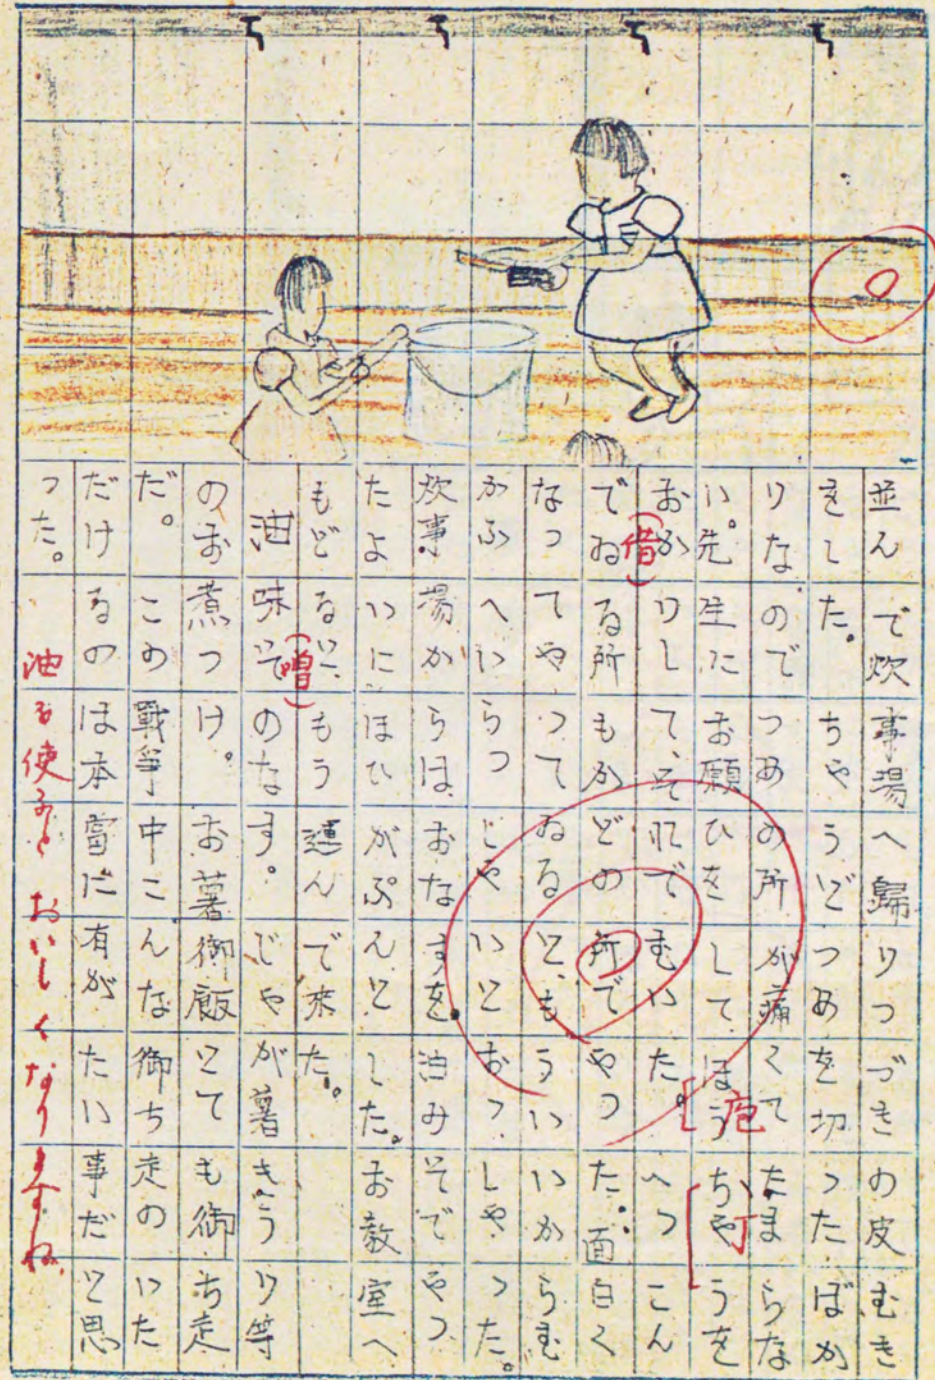 並んで炊事場へ歸りつゞきの皮むき
をした。ちやうどつめを切つたばか
りなのでつめの所が痛くてたまらな
い。先生にお願ひをしてほうちやうを
おかりして、それでむいた。へつこん
でゐる所もかどの所でやつた。面白く
なつてやつてゐると、もういいからむ
かふへいらつしやいとおつしやつた。
炊事場からは、おなすを油みそでやつ
たよいにほひがぷんとした。お教室へ
もどると、もう運んで來た。
油味そのなす。じやが薯きうり等
のお煮つけ。お薯御飯とても御ち走
だ。この戰爭中こんな御ち走のいた
だけるのは本當に有がたい事だと思
つた。
(借)
(噌)
庖
丁
油を使ふと おいしくなりますね